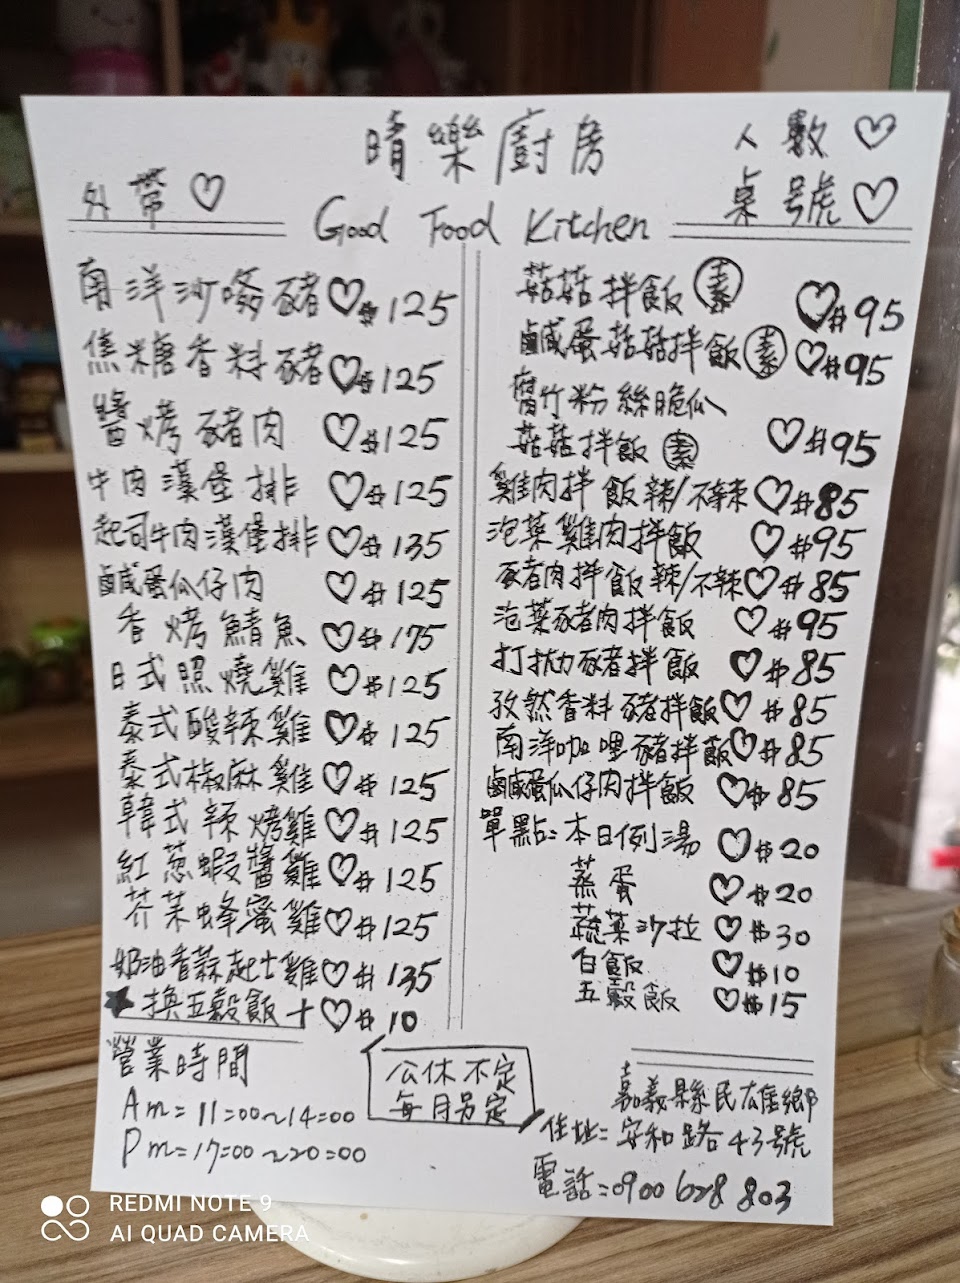 晴樂廚房
人數♡
外帶♡
桌號♡
Good Food Kitchen
南洋沙嗲豬♡$125
焦糖香料豬♡$125
醬烤豬肉♡$125
牛肉漢堡排♡$125
起司牛肉漢堡排♡$135
鹹蛋瓜仔肉♡$125
香烤鯖魚♡$175
日式照燒雞♡$125
泰式酸辣雞♡$125
泰式椒麻雞♡$125
韓式辣烤雞♡$125
紅蔥蝦醬雞♡$125
芥茉蜂蜜雞♡$125
奶油香蒜起士雞♡$135
★換五穀飯+♡$10
菇菇拌飯素♡$95
鹹蛋菇菇拌飯素♡$95
腐竹粉絲脆瓜
菇菇拌飯素♡$95
雞肉拌飯辣/不辣♡$85
泡菜雞肉拌飯♡$95
豬肉拌飯辣/不辣♡$85
泡菜豬肉拌飯♡$95
打拋豬拌飯♡$85
孜然香料豬拌飯♡$85
南洋咖哩豬拌飯♡$85
鹹蛋瓜仔肉拌飯♡$85
單點:本日例湯♡$20
蒸蛋♡$20
蔬菜沙拉♡$30
白飯♡$10
五穀飯♡$15
營業時間
Am=11:00~14:00
Pm=17:00~20:00
公休不定
每月另定
嘉義縣民雄鄉
住址=安和路43號
電話:0900628803
REDMI NOTE 9
AI QUAD CAMERA